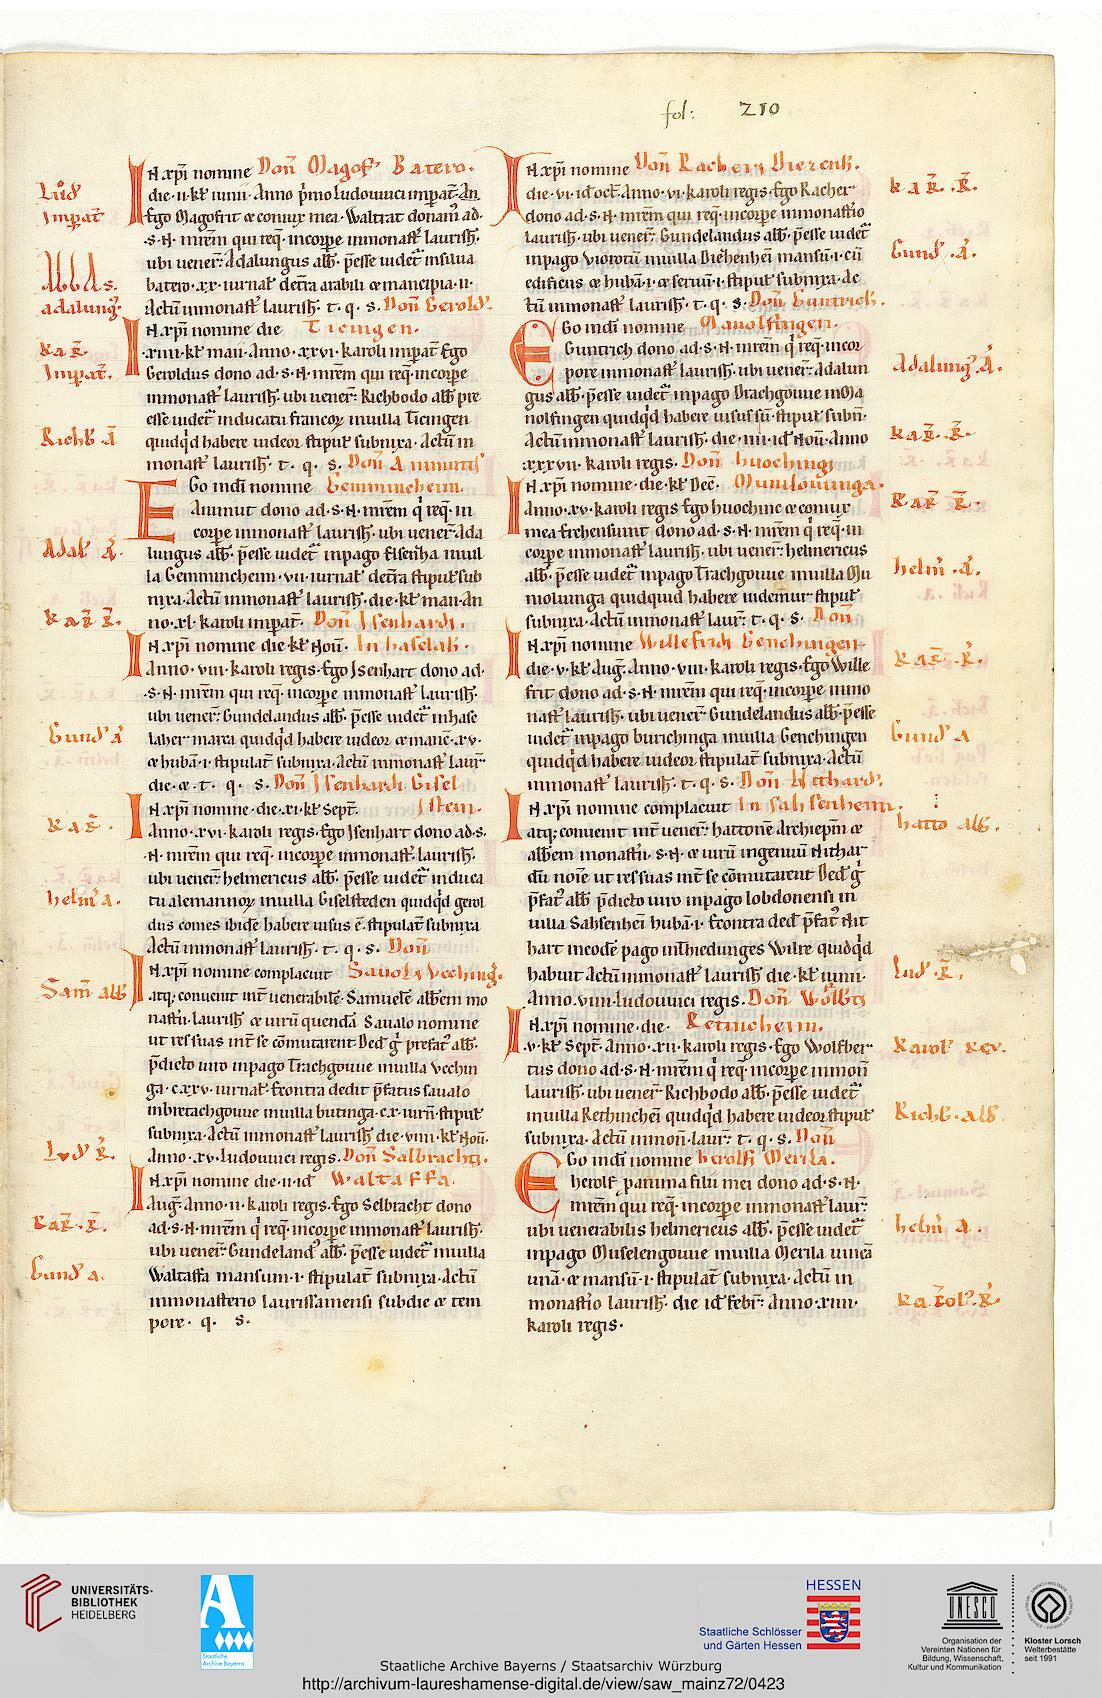 fol: 210
Lud
Impat
Abbas.
adalung.
kar.
Impat.
Richb. A
Adal. A.
kar. R.
Gund. A
kar.
helm. a.
Sam. abb
Lud. R.
kar. R.
Gund. a.
IN xpi nomine Don Magof. Batero.
die. ii. kl iunii. Anno pmo Ludouuici impat. In
Ego Magofrit & coniux mea Waltrat donam ad.
.S. N. mrem qui req. incorpe inmonast laurish.
ubi uener. Adalungus abb. pesse uidet insilua
batero. xx. iurnal detra arabili & mancipia. ii.
Actu inmonast laurish. t. q. s. Don Gerold.
IN xpi nomine die Ticingen.
.xiiii. kl maii. Anno. xxvi. karoli impat Ego
Geroldus dono ad. S. N. mrem qui req. incorpe
inmonast laurish. ubi uener. Richbodo abb pre
esse uidet inducatu francor inuilla Ticingen
quidqd habere uideor stipul subnixa. Actu in
monast laurish. t. q. s. Don Ammutis
EGo indi nomine Gemmincheim.
Aimmut dono ad. S. N. mrem q req. in
corpe inmonast laurish. ubi uener. Ada
lungus abb. pesse uidet inpago Elsenha inuil
la Gemmincheim. vii. iurnal detra stipul sub
nixa. Actu inmonast laurish. die. kl maii. An
no. xl. karoli impat. Don Isenhardi.
IN xpi nomine die. kl Nou. In haselah.
Anno. viii. karoli regis. Ego Isenhart dono ad.
.S. N. mrem qui req. incorpe inmonast laurish.
ubi uener. Gundelandus abb. pesse uidet inhase
laher marca quidqd habere uideor & manc. xv.
& huban. i. stipulat subnixa. Actu inmonast laur
die. & t. q. s. Don Isenhardi Gisel
IN xpi nomine. die. xi. kl Sept. stein.
Anno. xvi. karoli regis. Ego Isenhart dono ad. s.
.N. mrem qui req. incorpe inmonast laurish.
ubi uener. helmericus abb. pesse uidet induca
tu alemannor inuilla Giselsteden quidqd gerol
dus comes ibide habere uisus e. stipulat subnixa
Actu inmonast laurish. t. q. s. Don
IN xpi nomine complacuit Sauoli Veching.
atq; conuenit int uenerabile Samuele abbem mo
nastii laurish & uiru quenda Saualo nomine
ut res suas int se comutarent Ded g prefat abb.
pdicto uiro inpago Trachgouue inuilla Vechin
ga. cxxv. iurnal. Econtra dedit pfatus saualo
inbretachgouue inuilla butinga. cx. iurn. stipul
subnixa. Actu inmonast laurish. die. viiii. kl Nou.
Anno. xv. ludouuici regis. Don Salbrachti.
IN xpi nomine die. ii. id Waltaffa.
Aug. Anno. ii. karoli regis. Ego Selbracht dono
ad. S. N. mrem q req. incorpe inmonast laurish.
ubi uener. Gundeland abb. pesse uidet inuilla
Waltaffa mansum. i. stipulat subnixa. Actu
inmonasterio laurissamensi subdie & tem
pore. q. s.
IN xpi nomine Don Racheri Dierenh.
die. vi. id oct. Anno. vi. karoli regis. Ego Racher
dono ad. S. N. mrem qui req. incorpe inmonastio
laurish. ubi uener. Gundelandus abb. pesse uidet
inpago Viorotun inuilla Diehenhei mansu. i. cu
edificus & huba. i. & seruu. i. stipul subnixa. Ac
tu inmonast laurish. t. q. s. Don Guntrich.
EGo indi nomine Manolfingen.
Guntrich dono ad. S. N. mrem q req. incor
pore inmonast laurish. ubi uener. Adalun
gus abb. pesse uidet inpago Drachgouue inMa
nolfingen quidqd habere uisus su. stipul subn.
Actu inmonast laurish. die. iiii. id Nou. Anno
xxxvii. karoli regis. Don huochingi
IN xpi nomine. die. kl Dec. Munilouuinga.
Anno. xv. karoli regis Ego huochinc & coniux
mea Erehensuint dono ad. S. N. mrem q req. in
corpe inmonast laurish. ubi uener. helmericus
abb. pesse uidet inpago Trachgouue inuilla Mu
niolunga quidquid habere uidemur stipul
subnixa. Actu inmonast laur. t. q. s. Don
IN xpi nomine Willefridi Genchingen.
die. v. kl Aug. Anno. viii. karoli regis. Ego Wille
frit dono ad. S. N. mrem qui req. incorpe inmo
nast laurish. ubi uener Gundelandus abb. pesse
uidet inpago burichinga inuilla Genchingen
quidqd habere uideor stipulat subnixa. Actu
inmonast laurish. t. q. s. Don Nithardi.
IN xpi nomine complacuit In Sahsenheim.
atq; conuenit int uener. hattone Archiepm &
abbem monastii. S. N. & uiru ingenuu Nithar
du noie ut res suas int se comutarent Ded g
pfat abb pdicto uiro inpago lobdonensi in
uilla Sahsenhei huba. i. Econtra ded pfat Nit
hart ineode pago inThiedunges Wilre quidqd
habuit Actu inmonast laurish die. kl iunii.
Anno. viiii. ludouuici regis. Don Wolbti
IN xpi nomine. die. Retincheim.
.v. kl Sept. Anno. xii. karoli regis. Ego Wolfber
tus dono ad. S. N. mrem q req. incorpe inmon
laurish. ubi uener Richbodo abb. pesse uidet
inuilla Rethinchei quidqd habere uideor stipul
subnixa. Actu inmon. laur. t. q. s. Don
EGo indi nomine herolfi Merila.
herolf panima filii mei dono ad. S. N.
mrem qui req. incorpe inmonast laur.
ubi uenerabilis helmericus abb. pesse uidet
inpago Muselengouue inuilla Merila uinea
una. & mansu. i. stipulat subnixa. Actu in
monastio laurish. die id Febr. Anno. xiiii.
karoli regis.
kar. R.
Gund. A.
Adalung. A.
kar. R.
kar. R.
helm. A.
kar. R.
Gund. a
hatto abb.
Lud. R.
karol. rex.
Richb. abb.
helm. a.
karol. R.
UNIVERSITÄTS-
BIBLIOTHEK
HEIDELBERG
Staatliche
Archive Bayerns
HESSEN
Staatliche Schlösser
und Gärten Hessen
UNESCO
Organisation der
Vereinten Nationen für
Bildung, Wissenschaft,
Kultur und Kommunikation
Kloster Lorsch
Welterbestätte
seit 1991
Staatliche Archive Bayerns / Staatsarchiv Würzburg
http://archivum-laureshamense-digital.de/view/saw_mainz72/0423